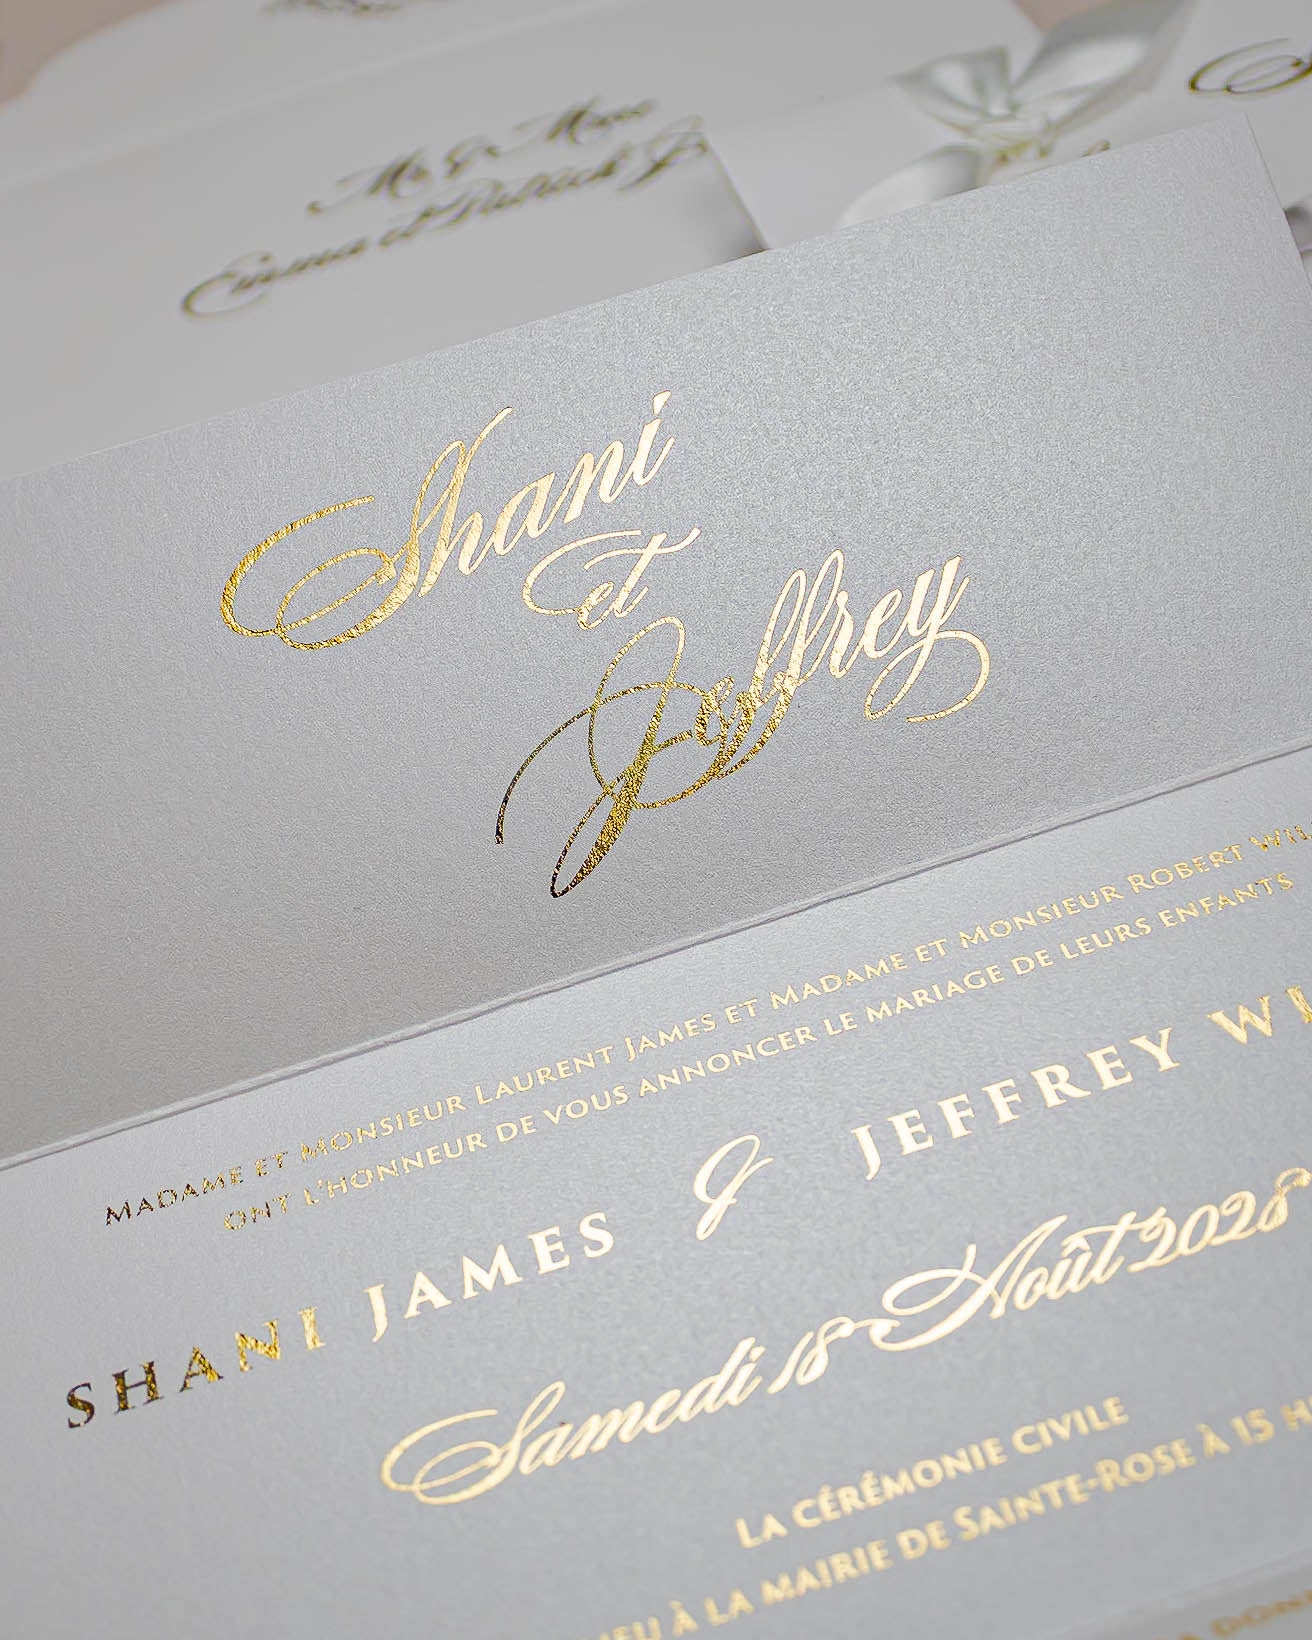 Mr & Mme
Emma et Patrick J
Shani
et
Jeffrey
Madame et Monsieur Laurent James et Madame et Monsieur Robert Wil
ont l'honneur de vous annoncer le mariage de leurs enfants
SHANI JAMES & JEFFREY WI
Samedi 18 Août 2028
La cérémonie civile
ieu à la mairie de Sainte-Rose à 15 h